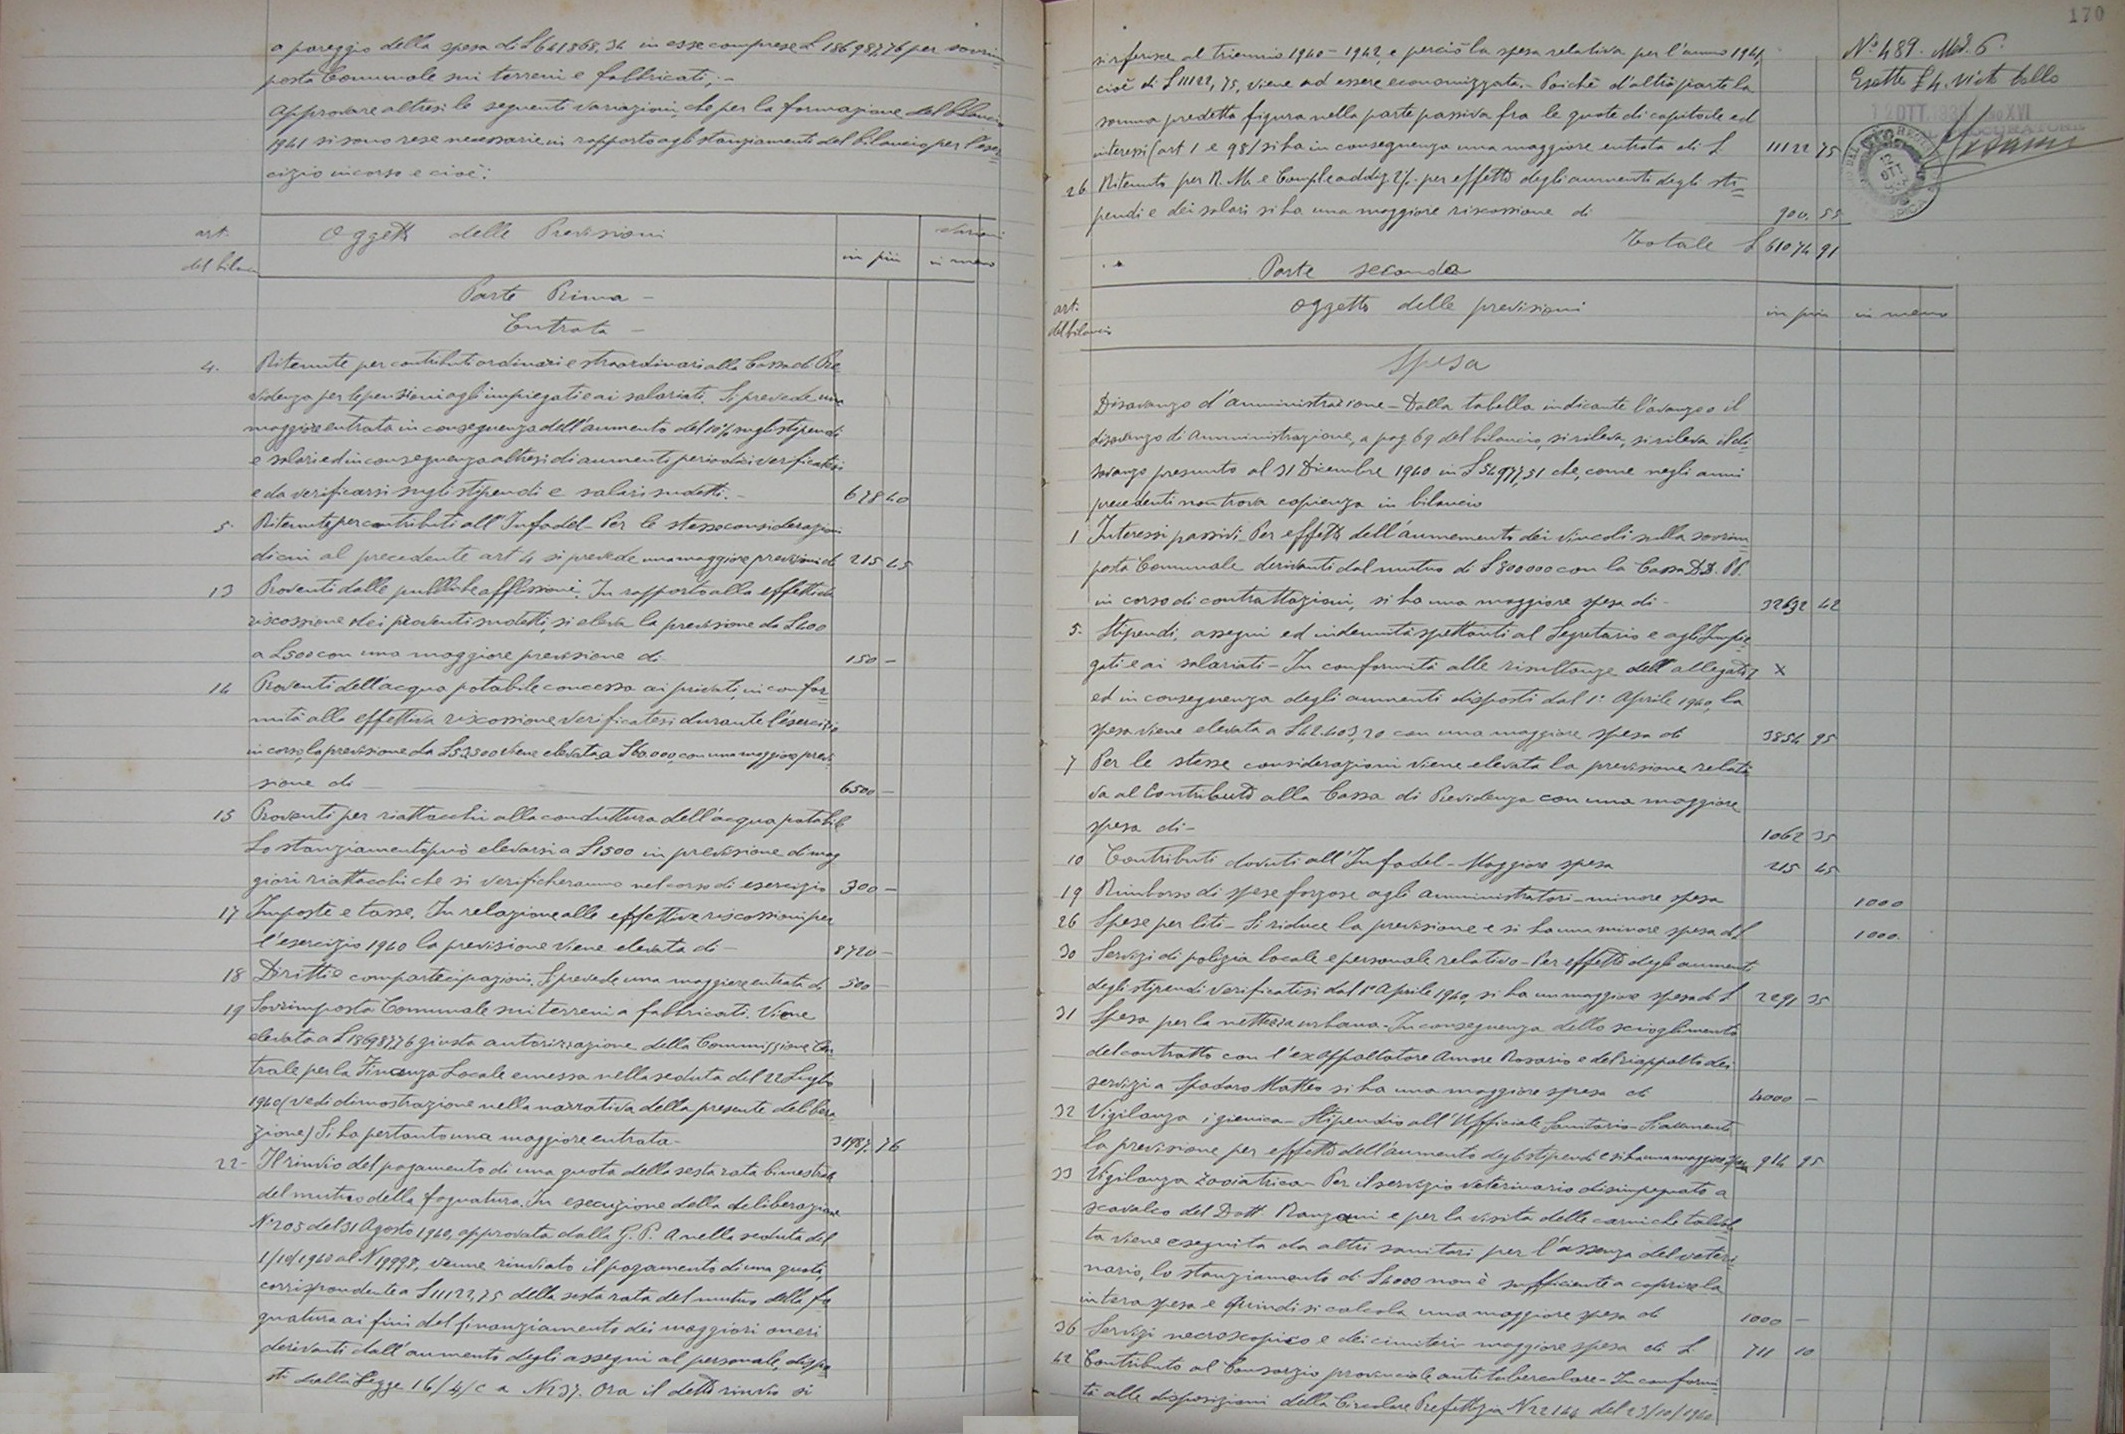 a pareggio della spesa di £ 641868,34 in esse comprese £ 186987,76 per sovrim
posta Comunale sui terreni e fabbricati; -
Approvare altresì le seguenti variazioni, che per la formazione del bilancio
1941 si sono rese necessarie in rapporto agli stanziamenti del bilancio per l'eser=
cizio in corso e cioè:
art.
del bilan
Oggetto delle Previsioni
in più
in meno
Parte Prima -
Entrata -
4. Ritenute per contributi ordinari e straordinari alla Cassa di Pre
videnza per le pensioni agli impiegati e ai salariati. Si prevede una
maggiore entrata in conseguenza dell'aumento del 10% sugli stipendi
e salari ed in conseguenza altresì di aumenti periodici verificatisi
e da verificarsi sugli stipendi e salari sudetti. - 678 40
5. Ritenute per contributi all'Infadel - Per le stesse considerazioni
di cui al precedente art 4 si prevede una maggiore previsione di 215 45
13 Proventi dalle pubbliche affissioni. In rapporto alla effettiva
riscossione dei proventi sudetti, si eleva la previsione da £ 400
a £ 500 con una maggiore previsione di 150 -
14 Proventi dell'acqua potabile concessa ai privati, in confor=
mità alla effettiva riscossione verificatesi durante l'esercizio
in corso, la previsione da £ 53.500 viene elevata a £ 60.000 con una maggiore previ=
sione di - 6500 -
15 Proventi per riattacchi alla conduttura dell'acqua potabile
Lo stanziamento può elevarsi a £ 1500 in previsione di mag
giori riattacchi che si verificheranno nel corso di esercizio 300 -
17 Imposte e tasse. In relazione alle effettive riscossioni per
l'esercizio 1940 la previsione viene elevata di - 8720 -
18 Diritti e compartecipazioni. Si prevede una maggiore entrata di 500 -
19 Sovrimposta Comunale sui terreni a fabbricati. Viene
elevata a £ 186987,76 giusta autorizzazione della Commissione Cen
trale per la Finanza Locale emessa nella seduta del 22 Luglio
1940 (vedi dimostrazione nella narrativa della presente delibera
zione) Si ha pertanto una maggiore entrata - 31987, 76
22 - Il rinvio del pagamento di una quota della sesta rata bimestrale
del mutuo della fognatura. In esecuzione della deliberazione
N° 205 del 31 Agosto 1940, approvata dalla G. P. A nella seduta del
1/10/1940 al N 19998, venne rinviato il pagamento di una quota,
corrispondente a £ 11122,75 della sesta rata del mutuo della fo
gnatura ai fini del finanziamento dei maggiori oneri
derivanti dall'aumento degli assegni al personale, dispo
sti dalla Legge 16/4/c a N 237. Ora il detto rinvio si
170
N° 489. Mod. 6.
Esatte £ 4. visto bollo
si riferisce al triennio 1940 - 1942, e perciò la spesa relativa per l'anno 1941,
cioè di £ 11122,75, viene ad essere economizzata. - Poichè d'altra parte la
somma predetta figura nella parte passiva fra le quote di capitale ed
interessi (art 1 e 98) si ha in conseguenza una maggiore entrata di £ 11122 75
26 Ritenute per R. M. e Comple addiz 2% per effetto degli aumenti degli sti=
pendi e dei salari si ha una maggiore riscossione di 900. 55
Totale £ 61074 91
Parte seconda
art.
del bilancio
Oggetto delle previsioni
in più
in meno
Spesa
Disavanzo d'amministrazione - Dalla tabella indicante l'avanzo o il
disavanzo di amministrazione, a pag 69 del bilancio, si rileva, si rileva il di
savanzo presunto al 31 Dicembre 1940 in £ 54977,51 che, come negli anni
precedenti non trova capienza in bilancio
1 Interessi passivi Per effetto dell'aumemento dei vincoli sulla sovrim=
posta Comunale derivanti dal mutuo di £ 800000 con la Cassa DD. PP.
in corso di contrattazioni, si ha una maggiore spesa di - 32632 42
5. Stipendi, assegni ed indennità spettanti al Segretario e agli Impie
gati e ai salariati - In conformità alle risultanze dell'allegato 7 X
ed in conseguenza degli aumenti disposti dal 1° Aprile 1940, la
spesa viene elevata a £ 42.403,20 con una maggiore spesa di 3854 95
7 Per le stesse considerazioni viene elevata la previsione relati
va al Contributo alla Cassa di Previdenza con una maggiore
spesa di - 1062 35
10 Contributi dovuti all'Infadel - Maggiore spesa 215 45
19 Rimborso di spese forzose agli amministratori - minore spesa 1000
26 Spese per liti - Si riduce la previsione e si ha una minore spesa di £ 1000.
30 Servizi di polizia locale e personale relativo - Per effetto degli aumenti
degli stipendi verificatisi dal 1° Aprile 1940, si ha una maggiore spesa di £ 2291 35
31 Spesa per la nettezza urbana - In conseguenza dello scioglimento
del contratto con l'ex appaltatore Amore Rosario e del riappalto dei
servizi a Spadaro Matteo si ha una maggiore spesa di 4000 -
32 Vigilanza igienica - Stipendio all'Ufficiale Sanitario - Si aumenta
la previsione per effetto dell'aumento degli stipendi e si ha una maggiore spesa 914 95
33 Vigilanza zooiatrica - Per il servizio veterinario disimpegnato a
scavalco del Dott. Manzoni e per la visita delle carni che talvol
ta viene eseguita da altri sanitari per l'assenza del veteri
nario, lo stanziamento di £ 4000 non è sufficiente a coprire la
intera spesa e quindi si calcola una maggiore spesa di 1000 -
36 Servizi necroscopico e dei cimiteri - maggiore spesa di £ 711 10
42 Contributo al Consorzio provinciale antitubercolare - In conformi=
tà alle disposizioni della Circolare Prefettizia N 22144 del 23/10/1940